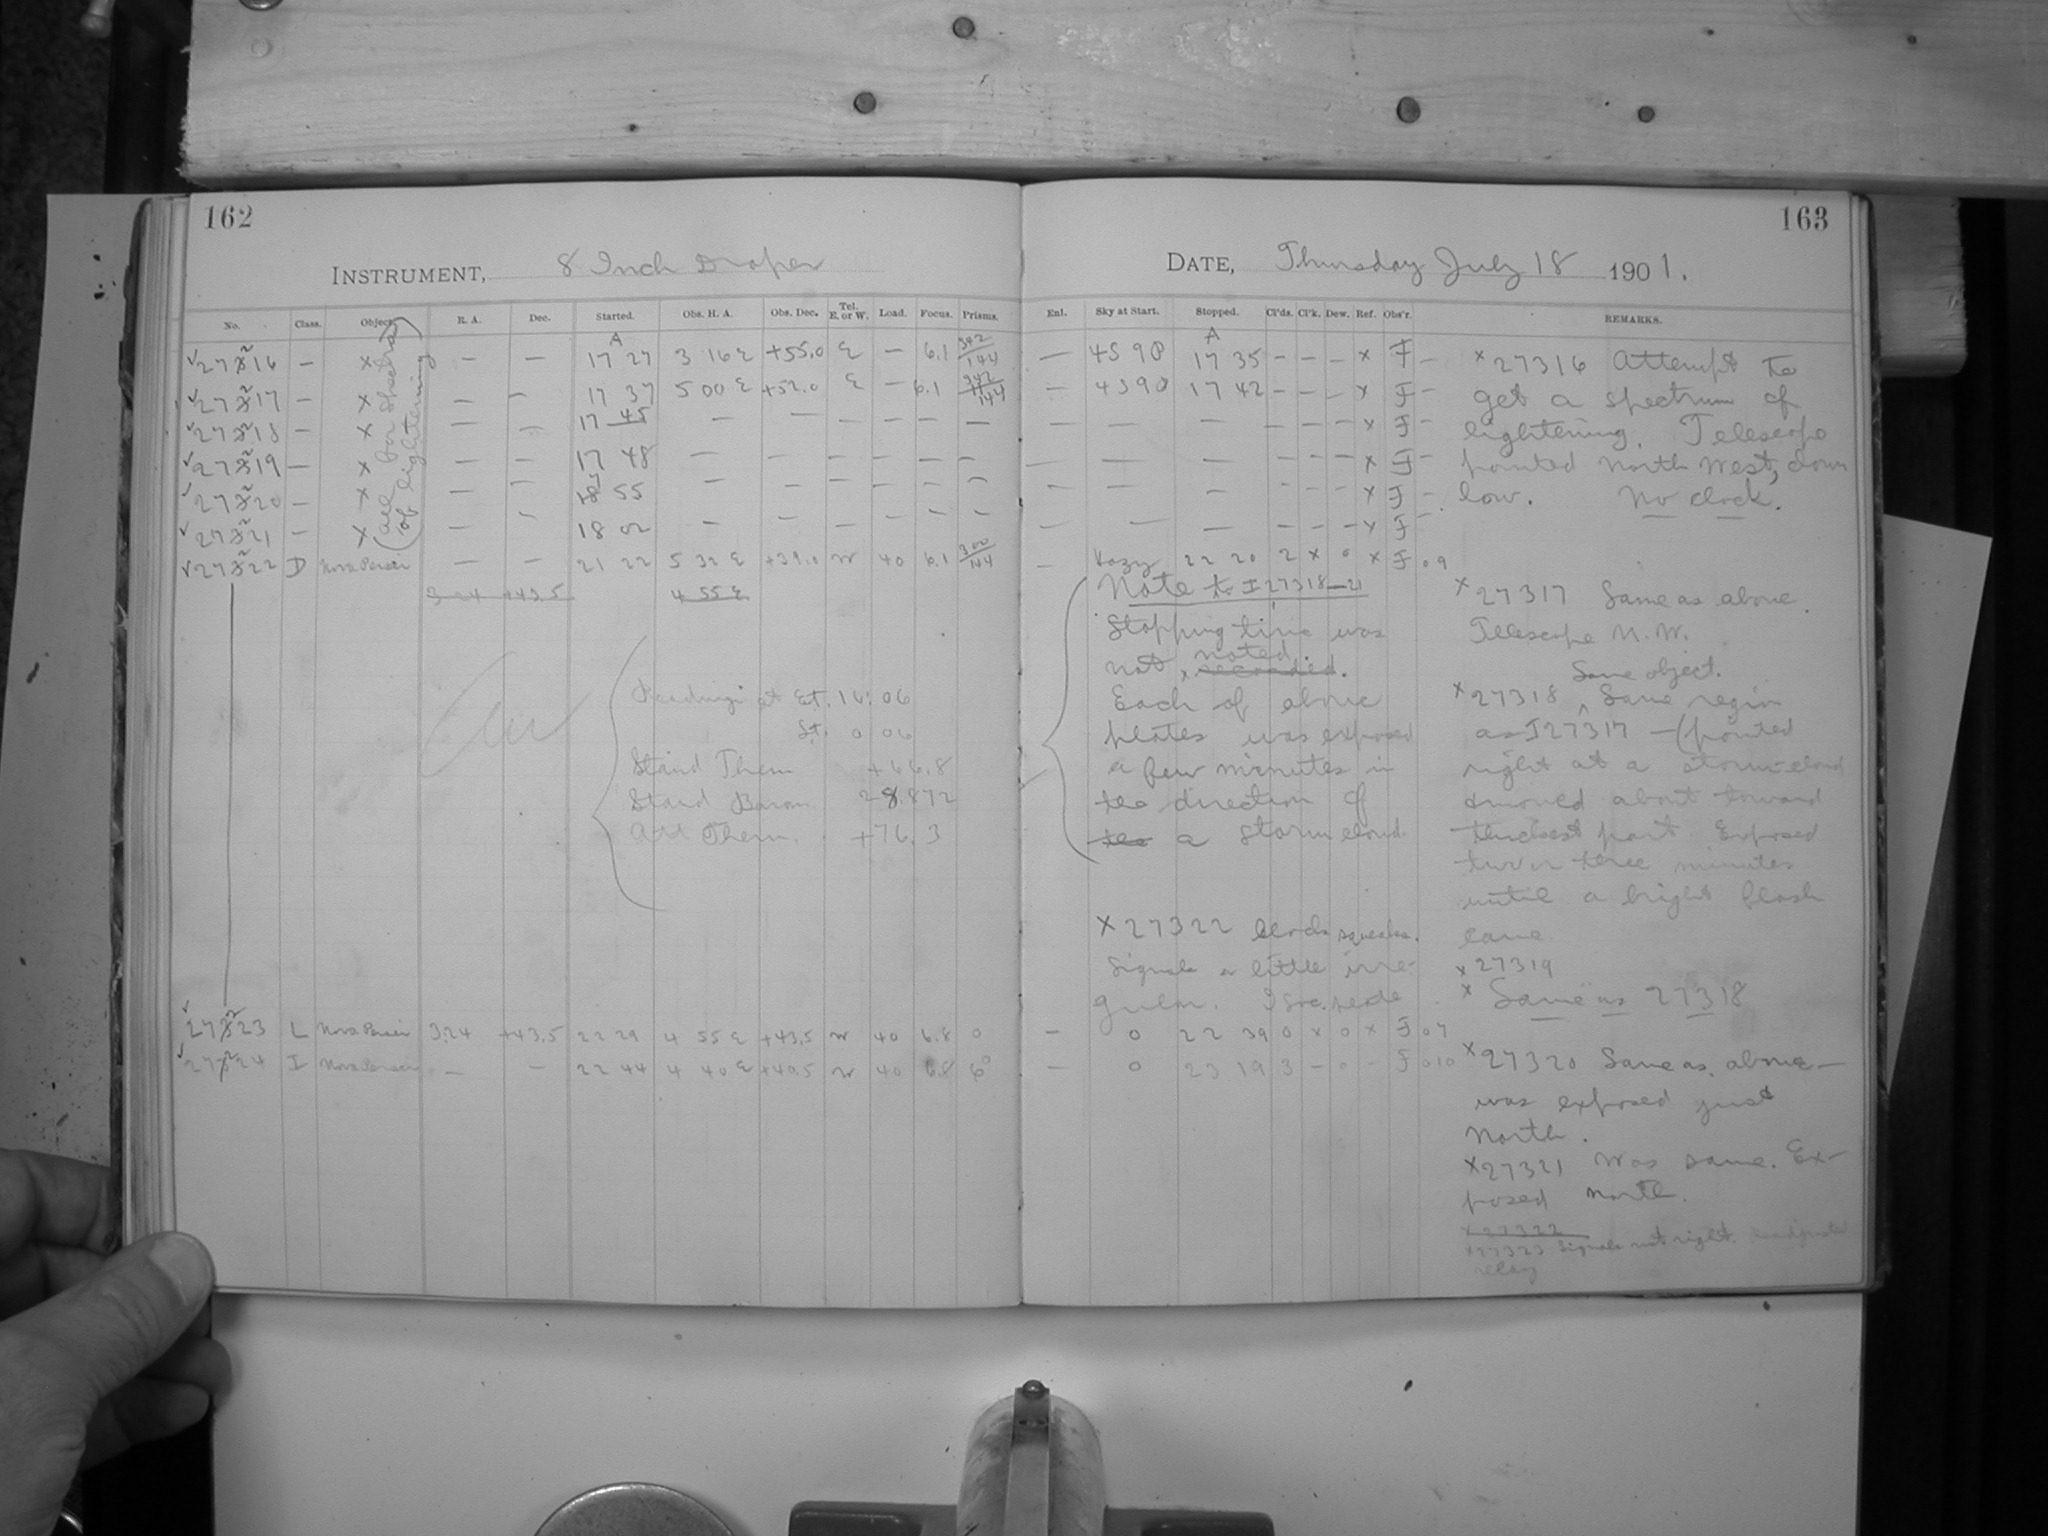 162
INSTRUMENT, 8 Inch Draper
No. Class. Object. R. A. Dec. Started. Obs. H. A. Obs. Dec. Tel. E. or W. Load. Focus. Prisms.
27316 — × — — A 17 27 3 16 E +55.0 E — 6.1 342/144
27317 — × — — 17 37 5 00 E +52.0 E — 6.1 342/144
27318 — × — — 17 45 — — — — — —
27319 — × — — 17 48 — — — — — —
27320 — × — — 55 — — — — — —
27321 — × — — 18 02 — — — — — —
(all for spectra of lightening)
27322 D Nova Persei — — 21 22 5 32 E +39.0 W 40 6.1 300/144
3 24 +43.5 4 55 E
Readings at Et. 16: 06
St. 0 06
Stand Therm +66.8
Stand Barom. 28.872
Att Therm. +76.3
27323 L Nova Persei 3.24 +43.5 22 29 4 55 E +43.5 W 40 6.8 0
27324 I Nova Persei — — 22 44 4 40 E +40.5 W 40 6.8 6°
163
DATE, Thursday July 18 1901.
Enl. Sky at Start. Stopped. Cl'ds. Cl'k. Dew. Ref. Obs'r. REMARKS.
— A 17 35 — — — × F —
— 17 42 — — — × F —
— — — — — — × F —
— — — — — — × F —
— — — — — — × F —
— — — — — — × F —
— Hazy 22 20 2 × 0 × F 09
Note to I 27318—21
Stopping time was
not, noted. recorded.
Each of above
plates was exposed
a few minutes in
the direction of
the a storm cloud
×27322 Clock squeaks.
Signals a little irre-
gular.
— 0 22 39 0 × 0 × F 07
— 0 23 19 3 — 0 — F 010
×27316 Attempt to
get a spectrum of
lightening. Telescope
pointed North West, down
low. No clock.
×27317 Same as above.
Telescope N. W.
Same object.
×27318 ^ Same region
as I27317 —(pointed
right at a storm-cloud
& moved about toward
thickest part. Exposed
two or three minutes
until a bright flash
came
×27319
× Same as 27318
×27320 Same as above—
was exposed just
North.
×27321 Was same. Ex-
posed North.
×27322
×27323 Signals not right. Readjusted
relay